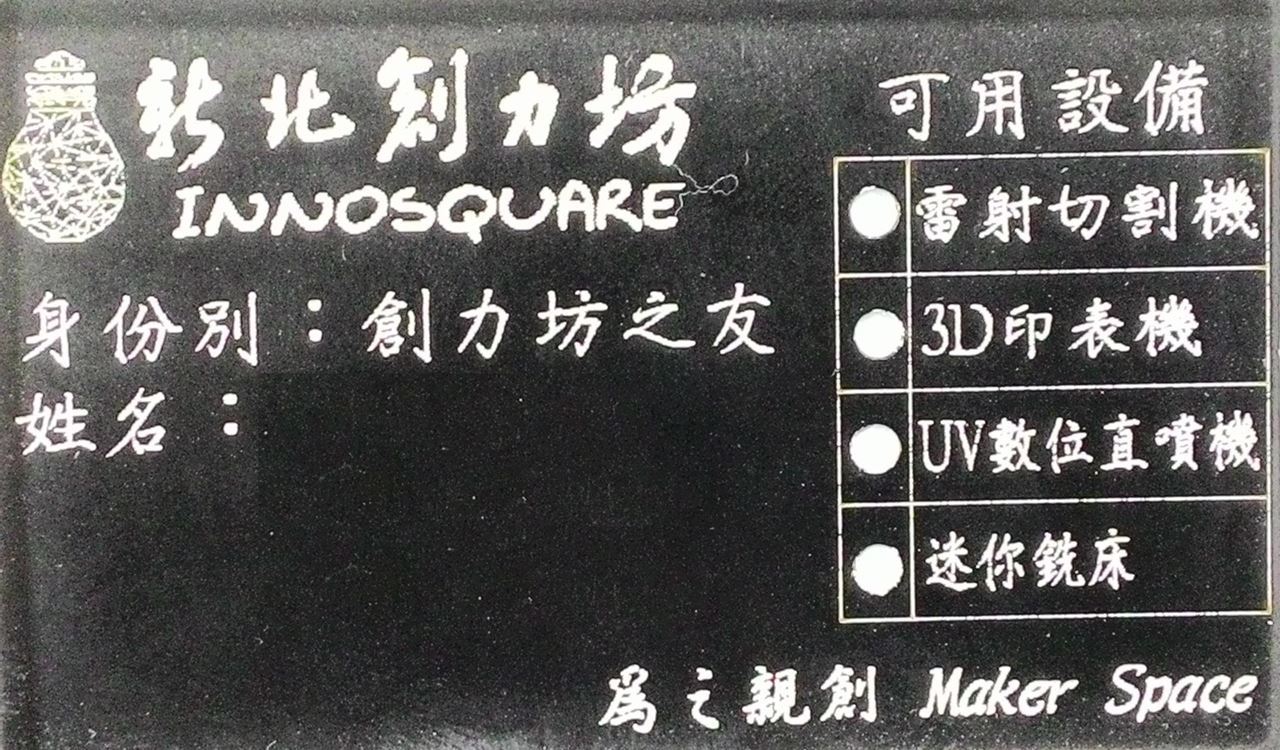 新北創力坊
INNOSQUARE
身份別：創力坊之友
姓名：
可用設備
雷射切割機
3D印表機
UV數位直噴機
迷你銑床
為之親創 Maker Space